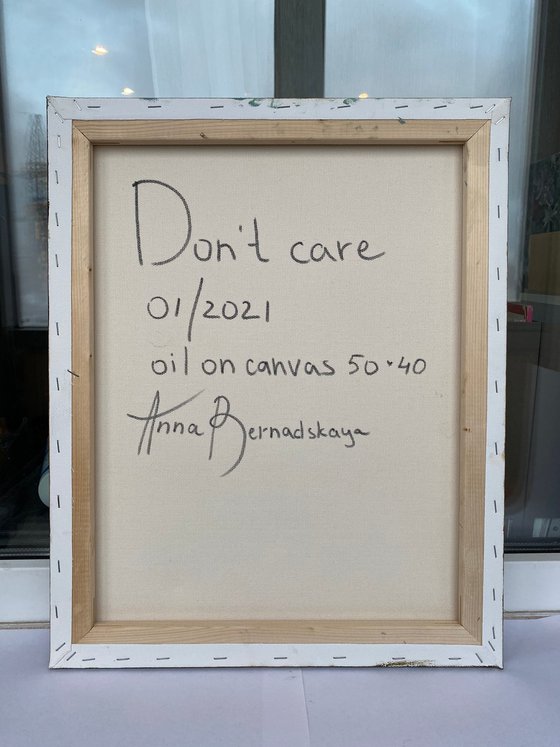 Don't care
01/2021
oil on canvas 50·40
Anna Bernadskaya